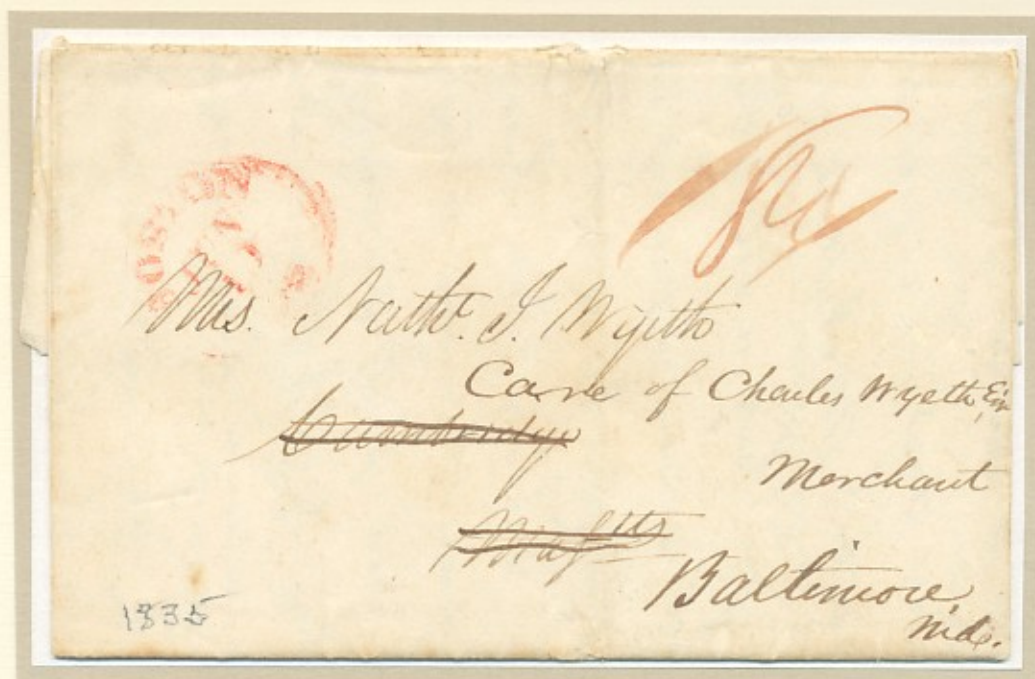 BOSTON
Mrs. Nathl. J. Wyeth
Care of Charles Wyeth, Esqr
Cambridge
Merchant
Masstts
Baltimore
Md.
1835